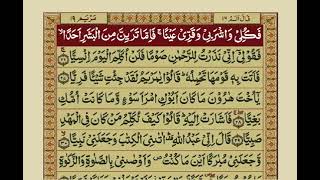 قال الم ١٦ مريم ١٩
فَكُلِيْ وَاشْرَبِيْ وَقَرِّيْ عَيْنًا ۚ فَاِمَّا تَرَيِنَّ مِنَ الْبَشَرِ اَحَدًا ۙ
فَقُوْلِيْٓ اِنِّيْ نَذَرْتُ لِلرَّحْمٰنِ صَوْمًا فَلَنْ اُكَلِّمَ الْيَوْمَ اِنْسِيًّا ۚ ﴿٢٦﴾
فَاَتَتْ بِهٖ قَوْمَهَا تَحْمِلُهٗ ؕ قَالُوْا يٰمَرْيَمُ لَقَدْ جِئْتِ شَيْـًٔا فَرِيًّا ﴿٢٧﴾
يٰٓاُخْتَ هٰرُوْنَ مَا كَانَ اَبُوْكِ امْرَاَ سَوْءٍ وَّمَا كَانَتْ اُمُّكِ
بَغِيًّا ۖۚ ﴿٢٨﴾ فَاَشَارَتْ اِلَيْهِ ؕ قَالُوْا كَيْفَ نُكَلِّمُ مَنْ كَانَ فِي الْمَهْدِ
صَبِيًّا ﴿٢٩﴾ قَالَ اِنِّيْ عَبْدُ اللّٰهِ ؕ اٰتٰىنِيَ الْكِتٰبَ وَجَعَلَنِيْ نَبِيًّا ۙ ﴿٣٠﴾
وَّجَعَلَنِيْ مُبٰرَكًا اَيْنَ مَا كُنْتُ ۪ وَاَوْصٰنِيْ بِالصَّلٰوةِ وَالزَّكٰوةِ